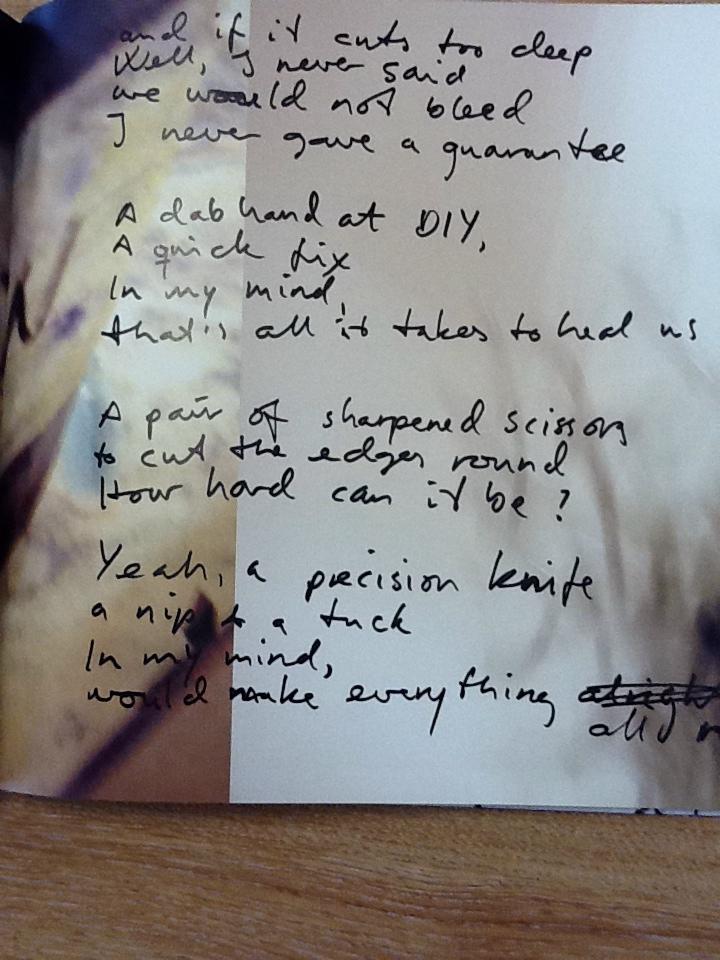 and if it cuts too deep
Well, I never said
we would not bleed
I never gave a guarantee
A dab hand at DIY,
A quick fix
In my mind,
that's all it takes to heal us
A pair of sharpened scissors
to cut the edges round
How hard can it be?
Yeah, a precision knife
a nip & a tuck
In my mind,
would make everything alright
all